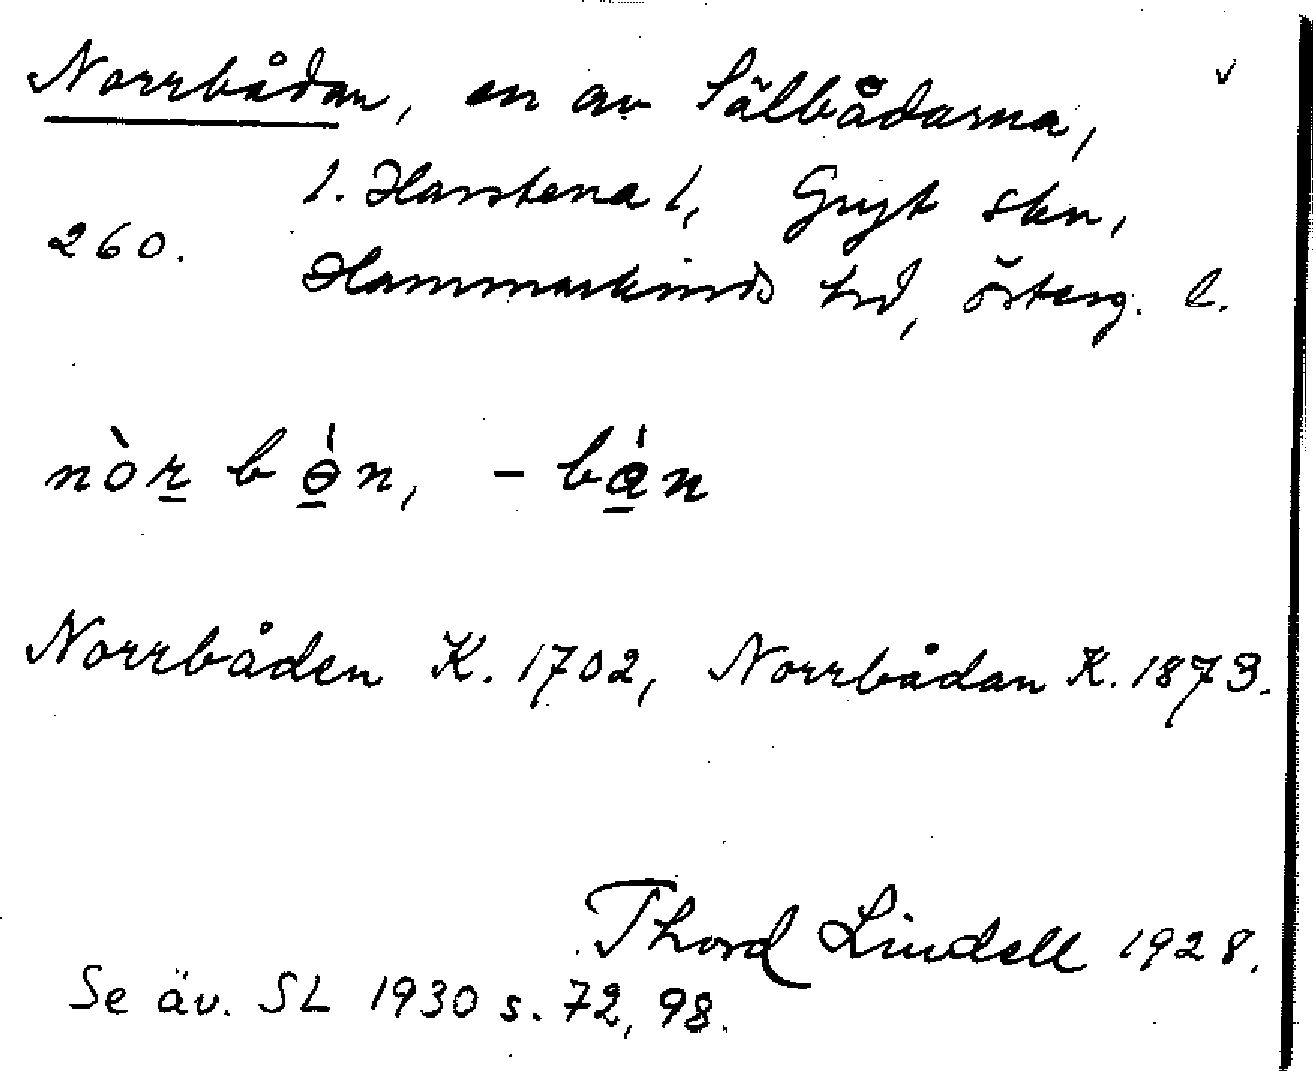 Norrbådan, en av Sälbådarna,
1. Harstena l, Gryt skn,
260.
Hammarkinds hrd, Österg. l.
nòr bǿn, - bán
Norrbåden K. 1702, Norrbådan K. 1873.
Thord Lindell 1928.
Se äv. SL 1930 s. 72, 98.